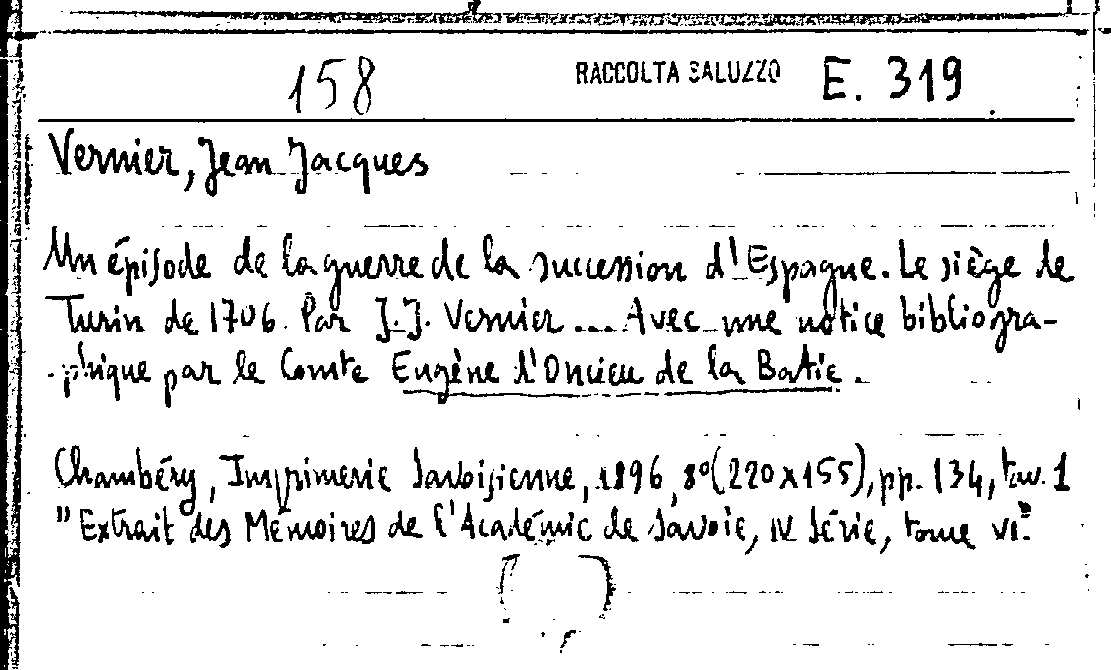 158 RACCOLTA SALUZZO E. 319
Vernier, Jean Jacques
Un épisode de la guerre de la succession d'Espagne. Le siège de
Turin de 1706. Par J.J. Vernier ... Avec une notice bibliogra-
phique par le Comte Eugène d'Oncieu de la Batie.
Chambéry, Imprimerie Savoisienne, 1896, 8°(220x155), pp. 134, tav. 1
"Extrait des Mémoires de l'Académie de Savoie, IV Série, tome VI"